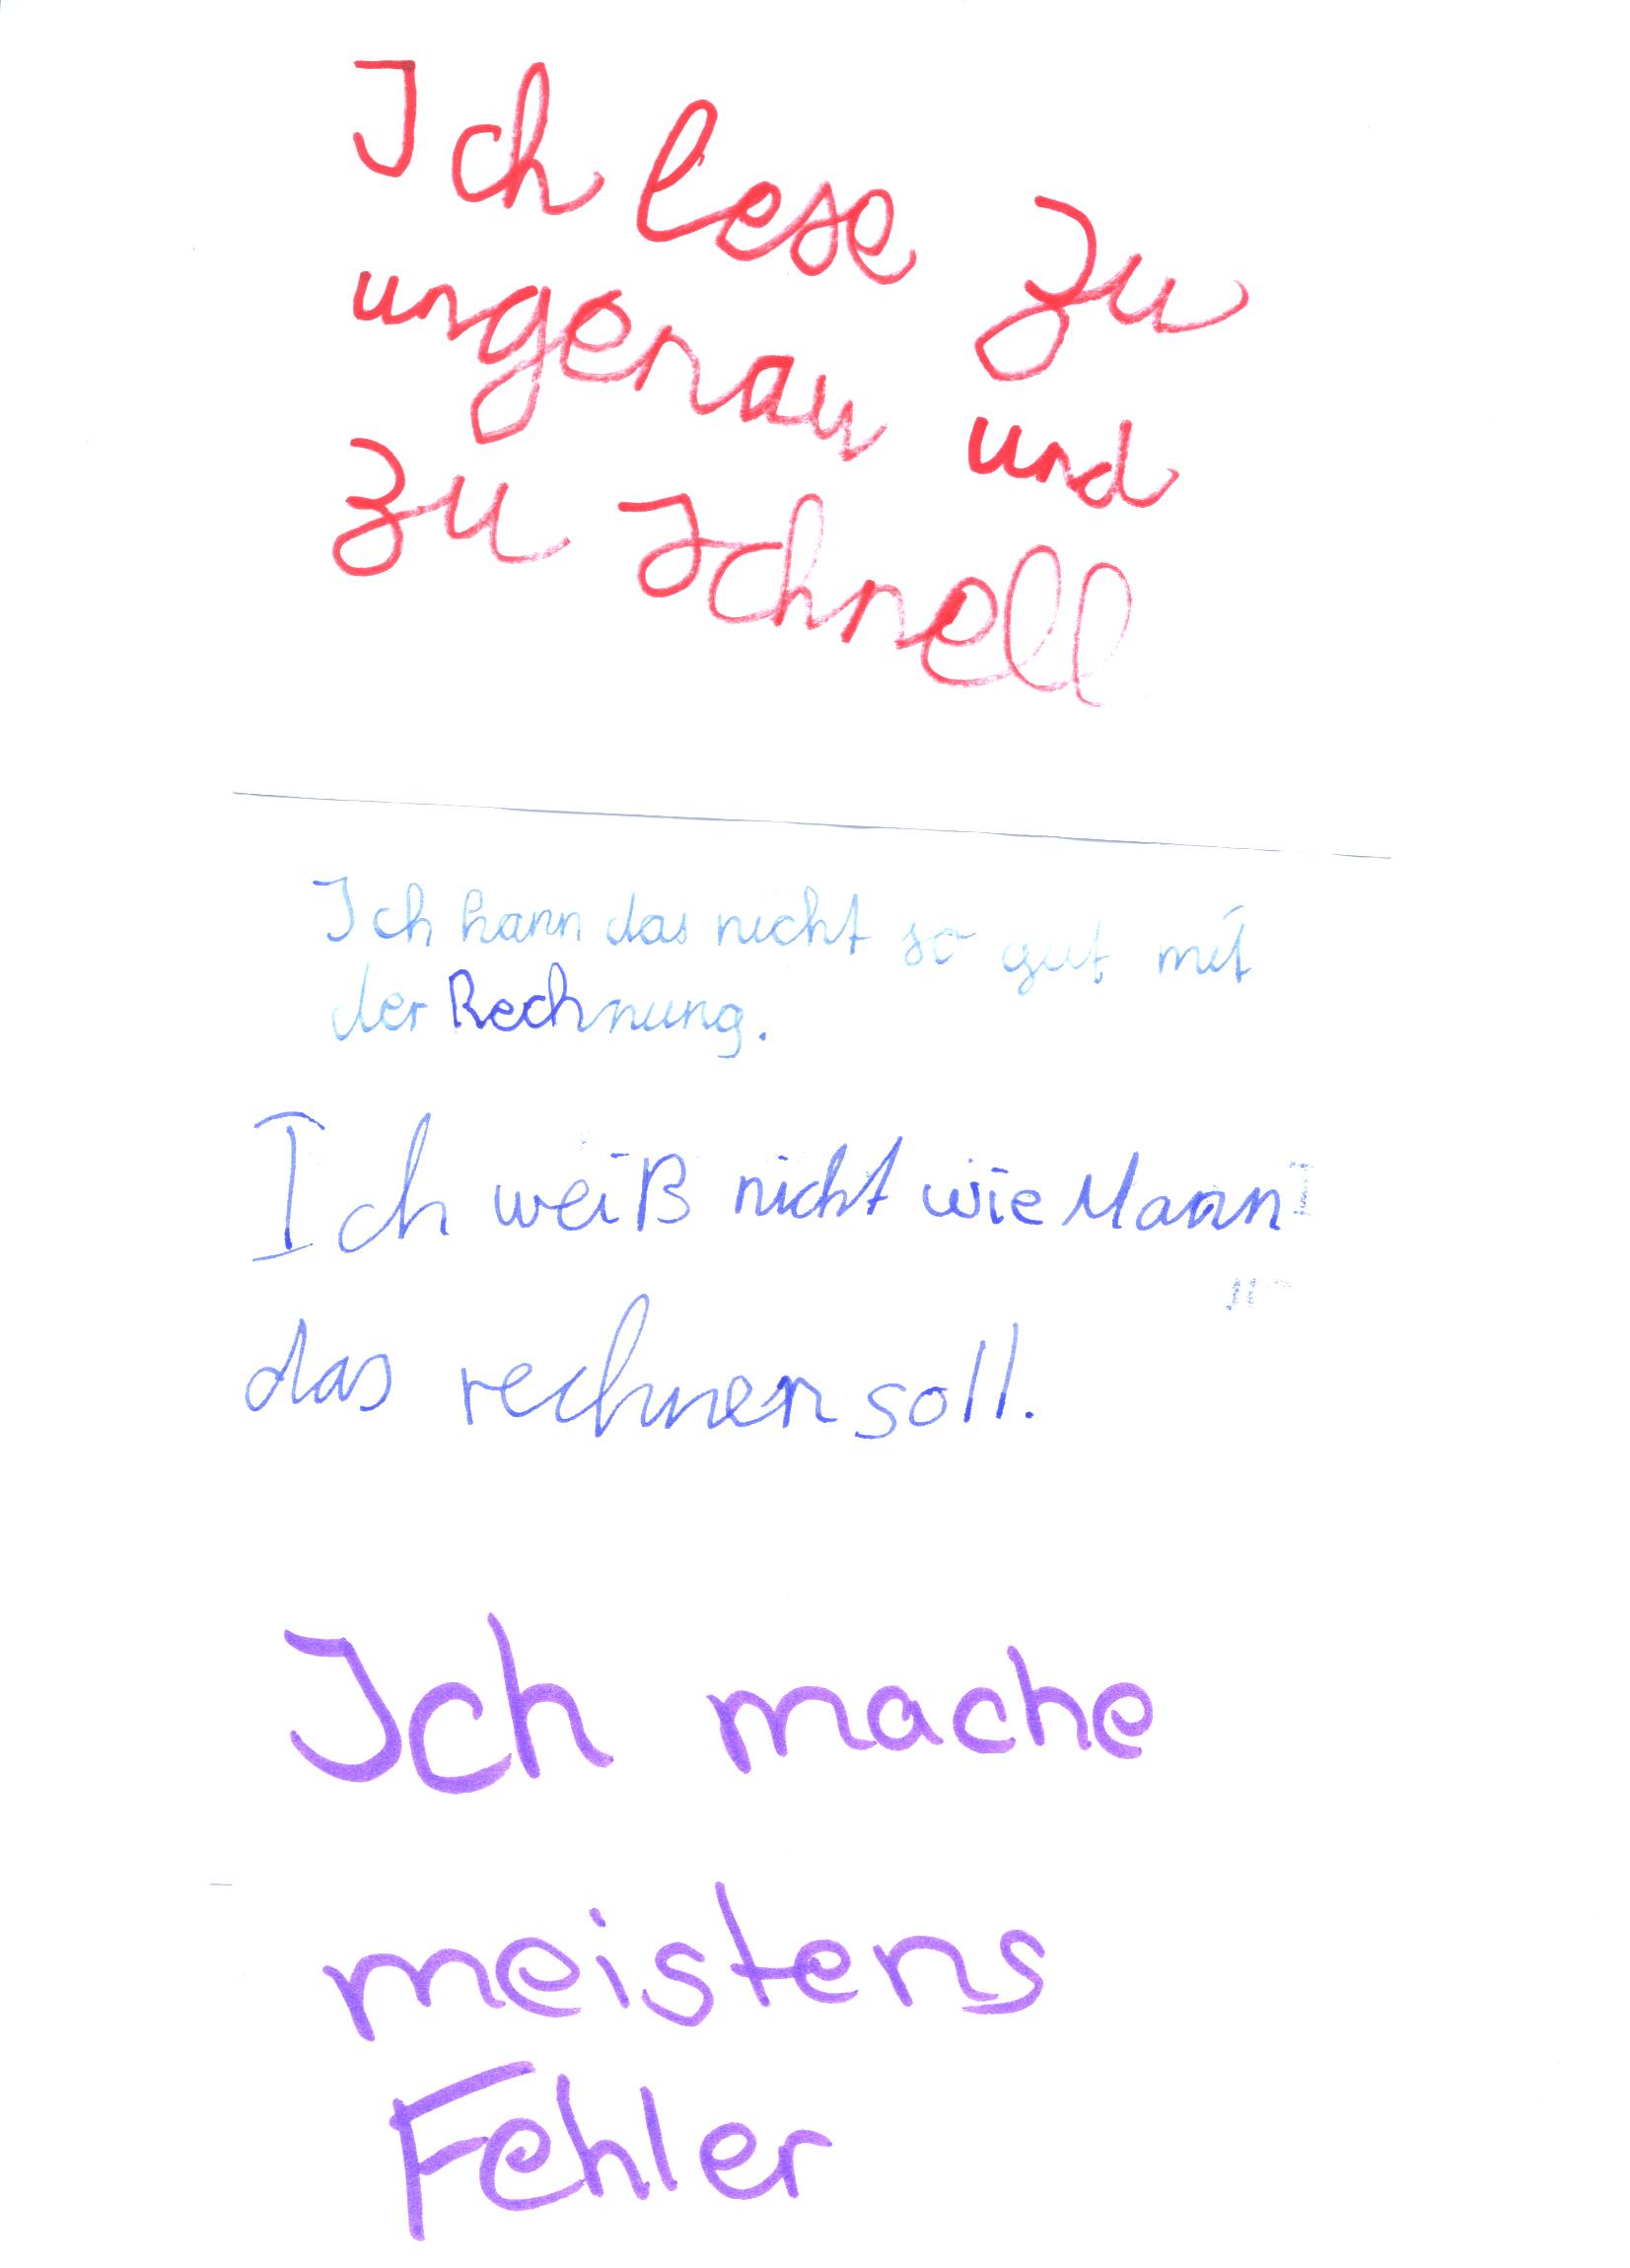 Ich lese zu
ungenau und
zu schnell
Ich kann das nicht so gut mit
der Rechnung.
Ich weiß nicht wie Mann
das rechnen soll.
Ich mache
meistens
Fehler